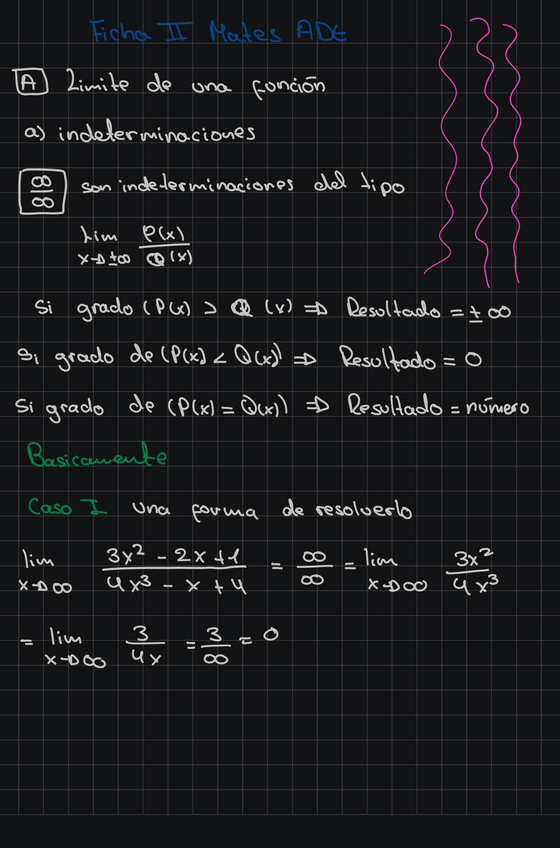 Ficha II Mates ADE
A Limite de una función
a) indeterminaciones
∞/∞ son indeterminaciones del tipo
lim x→±∞ P(x)/Q(x)
Si grado (P(x) > Q (x) ⇒ Resultado = ± ∞
Si grado de (P(x) < Q(x)) ⇒ Resultado = 0
Si grado de (P(x) = Q(x)) ⇒ Resultado = número
Basicamente
Caso I una forma de resolverlo
lim x→∞ (3x² - 2x + 1)/(4x³ - x + 4) = ∞/∞ = lim x→∞ 3x²/4x³
= lim x→∞ 3/4x = 3/∞ = 0